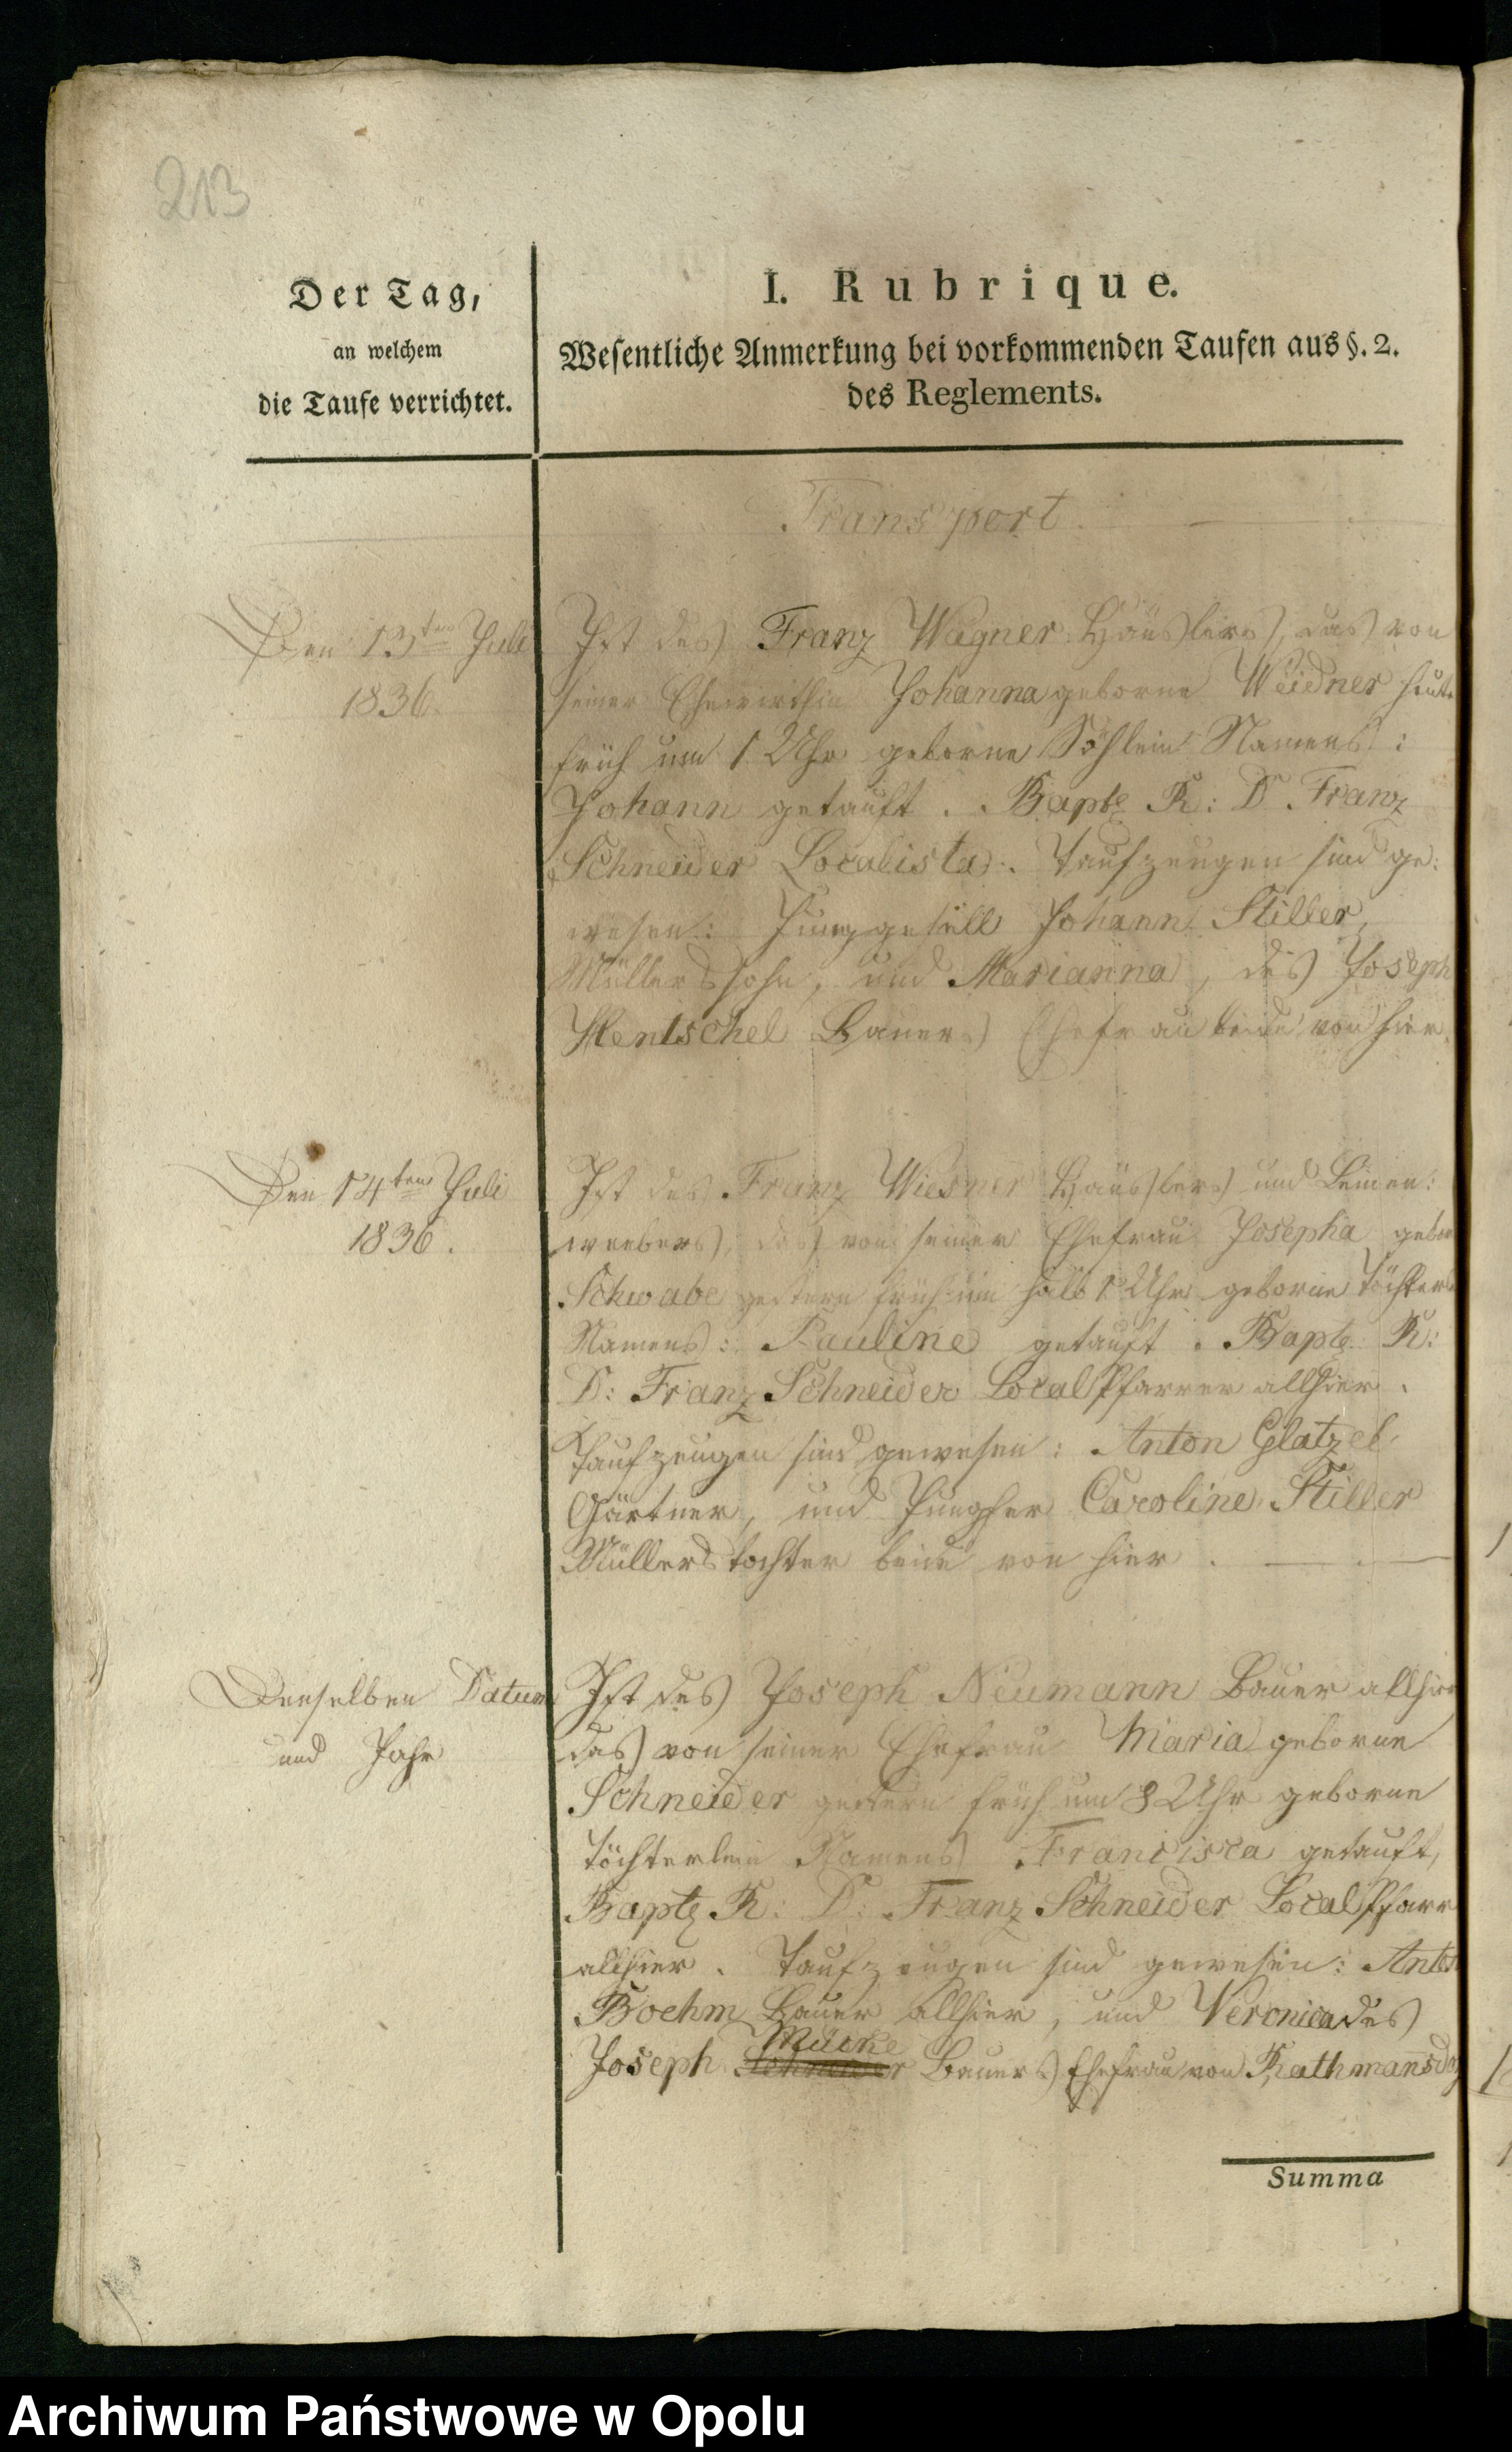 213
Der Tag,
an welchem
die Taufe verrichtet.
I. Rubrique.
Wesentliche Anmerkung bei vorkommenden Taufen aus §. 2.
des Reglements.
Transport.
Den 13ten Juli
1836.
Ist des Franz Wagner Häuslers, das von
seiner Ehewirthin Johanna geborne Weidner heute
früh um 1 Uhr geborne Söhlein Namens:
Johann getauft. Baptz R: D Franz
Schneider Localista. Taufzeugen sind ge:
wesen: Junggesell Johann Stiller,
Müllerssohn, und Marianna, des Joseph
Hentschel Bauers Ehefrau beide von hier.
Den 14ten Juli
1836.
Ist des Franz Wiesner Häuslers und Leinen:
webers, das von seiner Ehefrau Josepha gebor
Schwabe gestern früh um halb 1 Uhr geborne Töchterl
Namens: Pauline getauft. Baptz R:
D: Franz Schneider LocalPfarrer allhier.
Taufzeugen sind gewesen: Anton Glatzel
Gärtner, und Jungfer Caroline Stiller
Müllerstochter beide von hier.
Denselben Datum
und Jahr
Ist des Joseph Neumann Bauer allhier
das von seiner Ehefrau Maria geborne
Schneider gestern früh um 8 Uhr geborne
Töchterlein Namens Francisca getauft,
Baptz R: D: Franz Schneider LocalPfarr
allhier. Taufzeugen sind gewesen: Anton
Boehm Bauer allhier, und Veronica des
Mücke
Joseph Schneider Bauers Ehefrau von Rathmansd
Summa
Archiwum Państwowe w Opolu